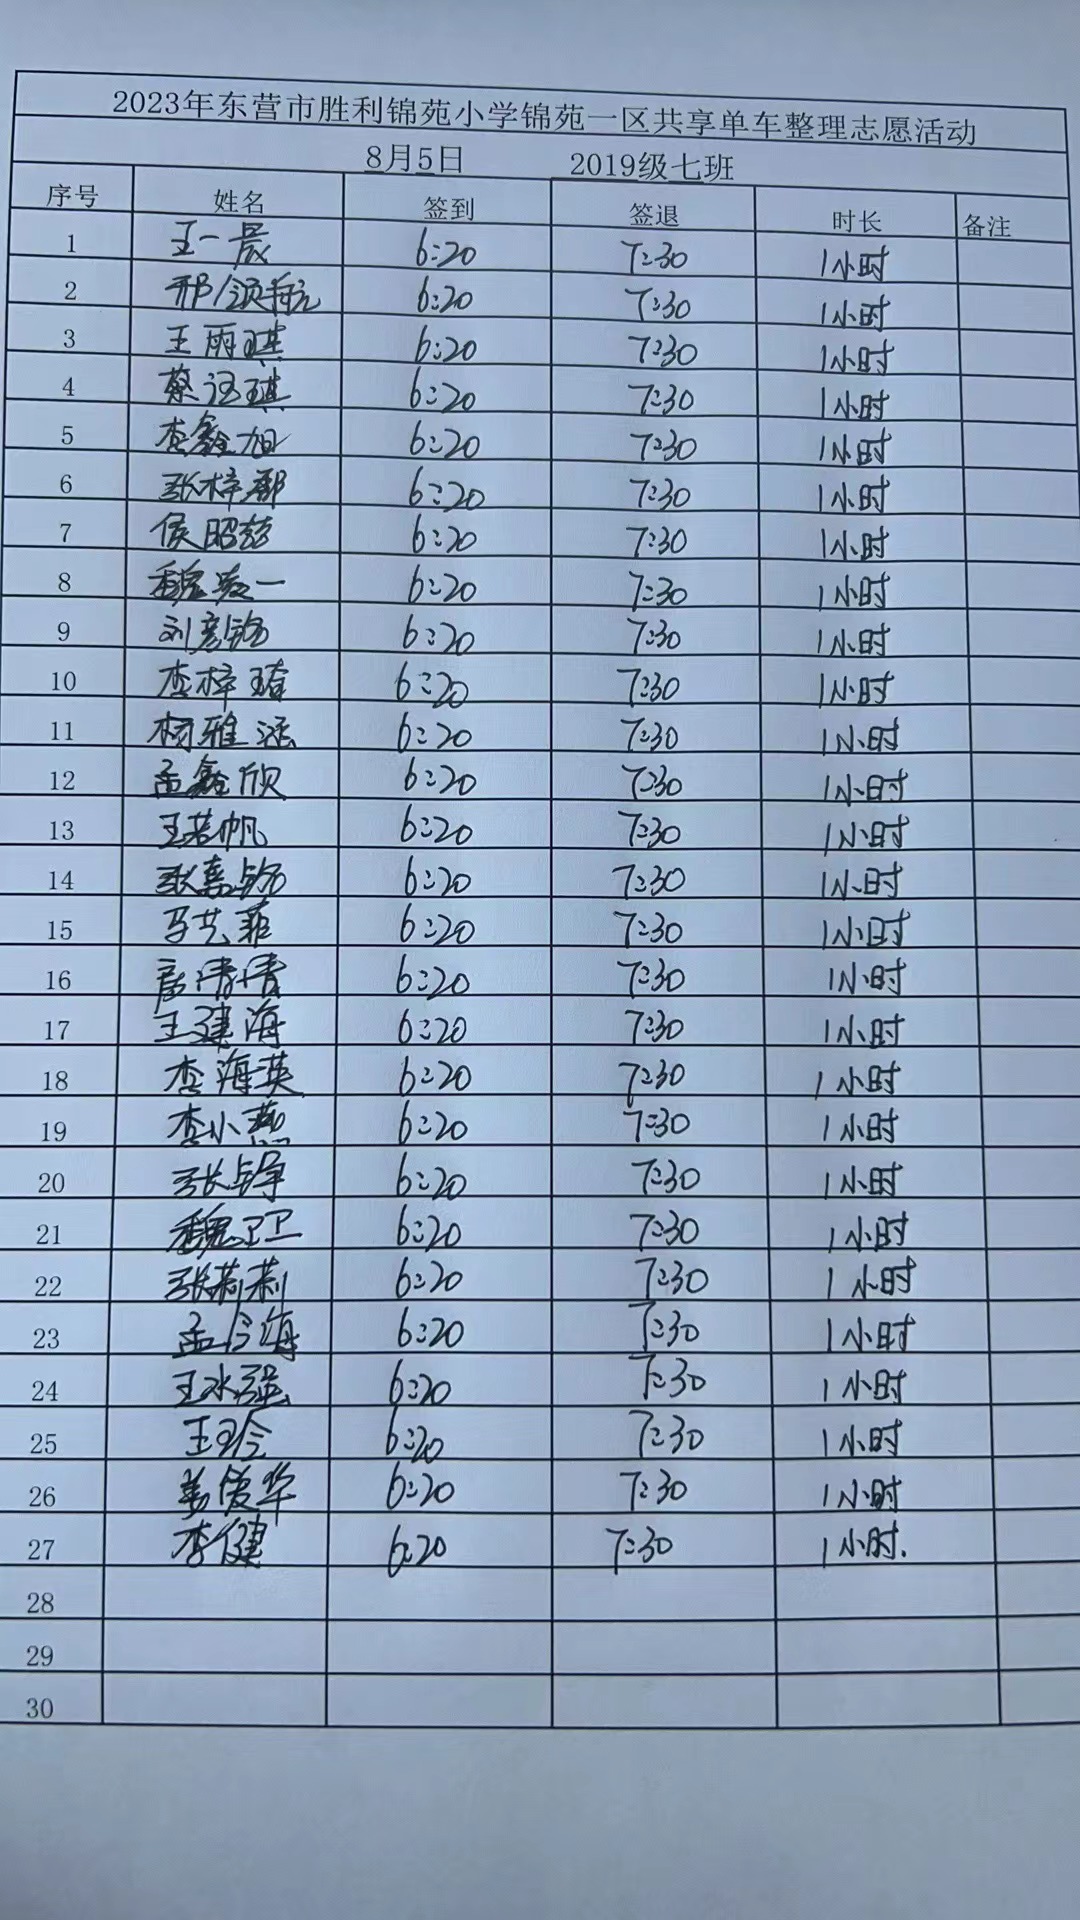 2023年东营市胜利锦苑小学锦苑一区共享单车整理志愿活动
8月5日 2019级七班
序号 姓名 签到 签退 时长 备注
1 王一晨 6:20 7:30 1小时
2 邢领航 6:20 7:30 1小时
3 王雨琪 6:20 7:30 1小时
4 蔡语琪 6:20 7:30 1小时
5 李鑫旭 6:20 7:30 1小时
6 张梓郡 6:20 7:30 1小时
7 侯昭懿 6:20 7:30 1小时
8 魏 一 6:20 7:30 1小时
9 刘彦钧 6:20 7:30 1小时
10 李梓瑄 6:20 7:30 1小时
11 杨雅涵 6:20 7:30 1小时
12 孟鑫欣 6:20 7:30 1小时
13 王若帆 6:20 7:30 1小时
14 张嘉钧 6:20 7:30 1小时
15 马艺菲 6:20 7:30 1小时
16 清清 6:20 7:30 1小时
17 王建海 6:20 7:30 1小时
18 李海英 6:20 7:30 1小时
19 李小燕 6:20 7:30 1小时
20 张铮 6:20 7:30 1小时
21 魏卫卫 6:20 7:30 1小时
22 张莉莉 6:20 7:30 1小时
23 孟令海 6:20 7:30 1小时
24 王水强 6:20 7:30 1小时
25 王玲 6:20 7:30 1小时
26 姜俊华 6:20 7:30 1小时
27 李健 6:20 7:30 1小时.
28
29
30